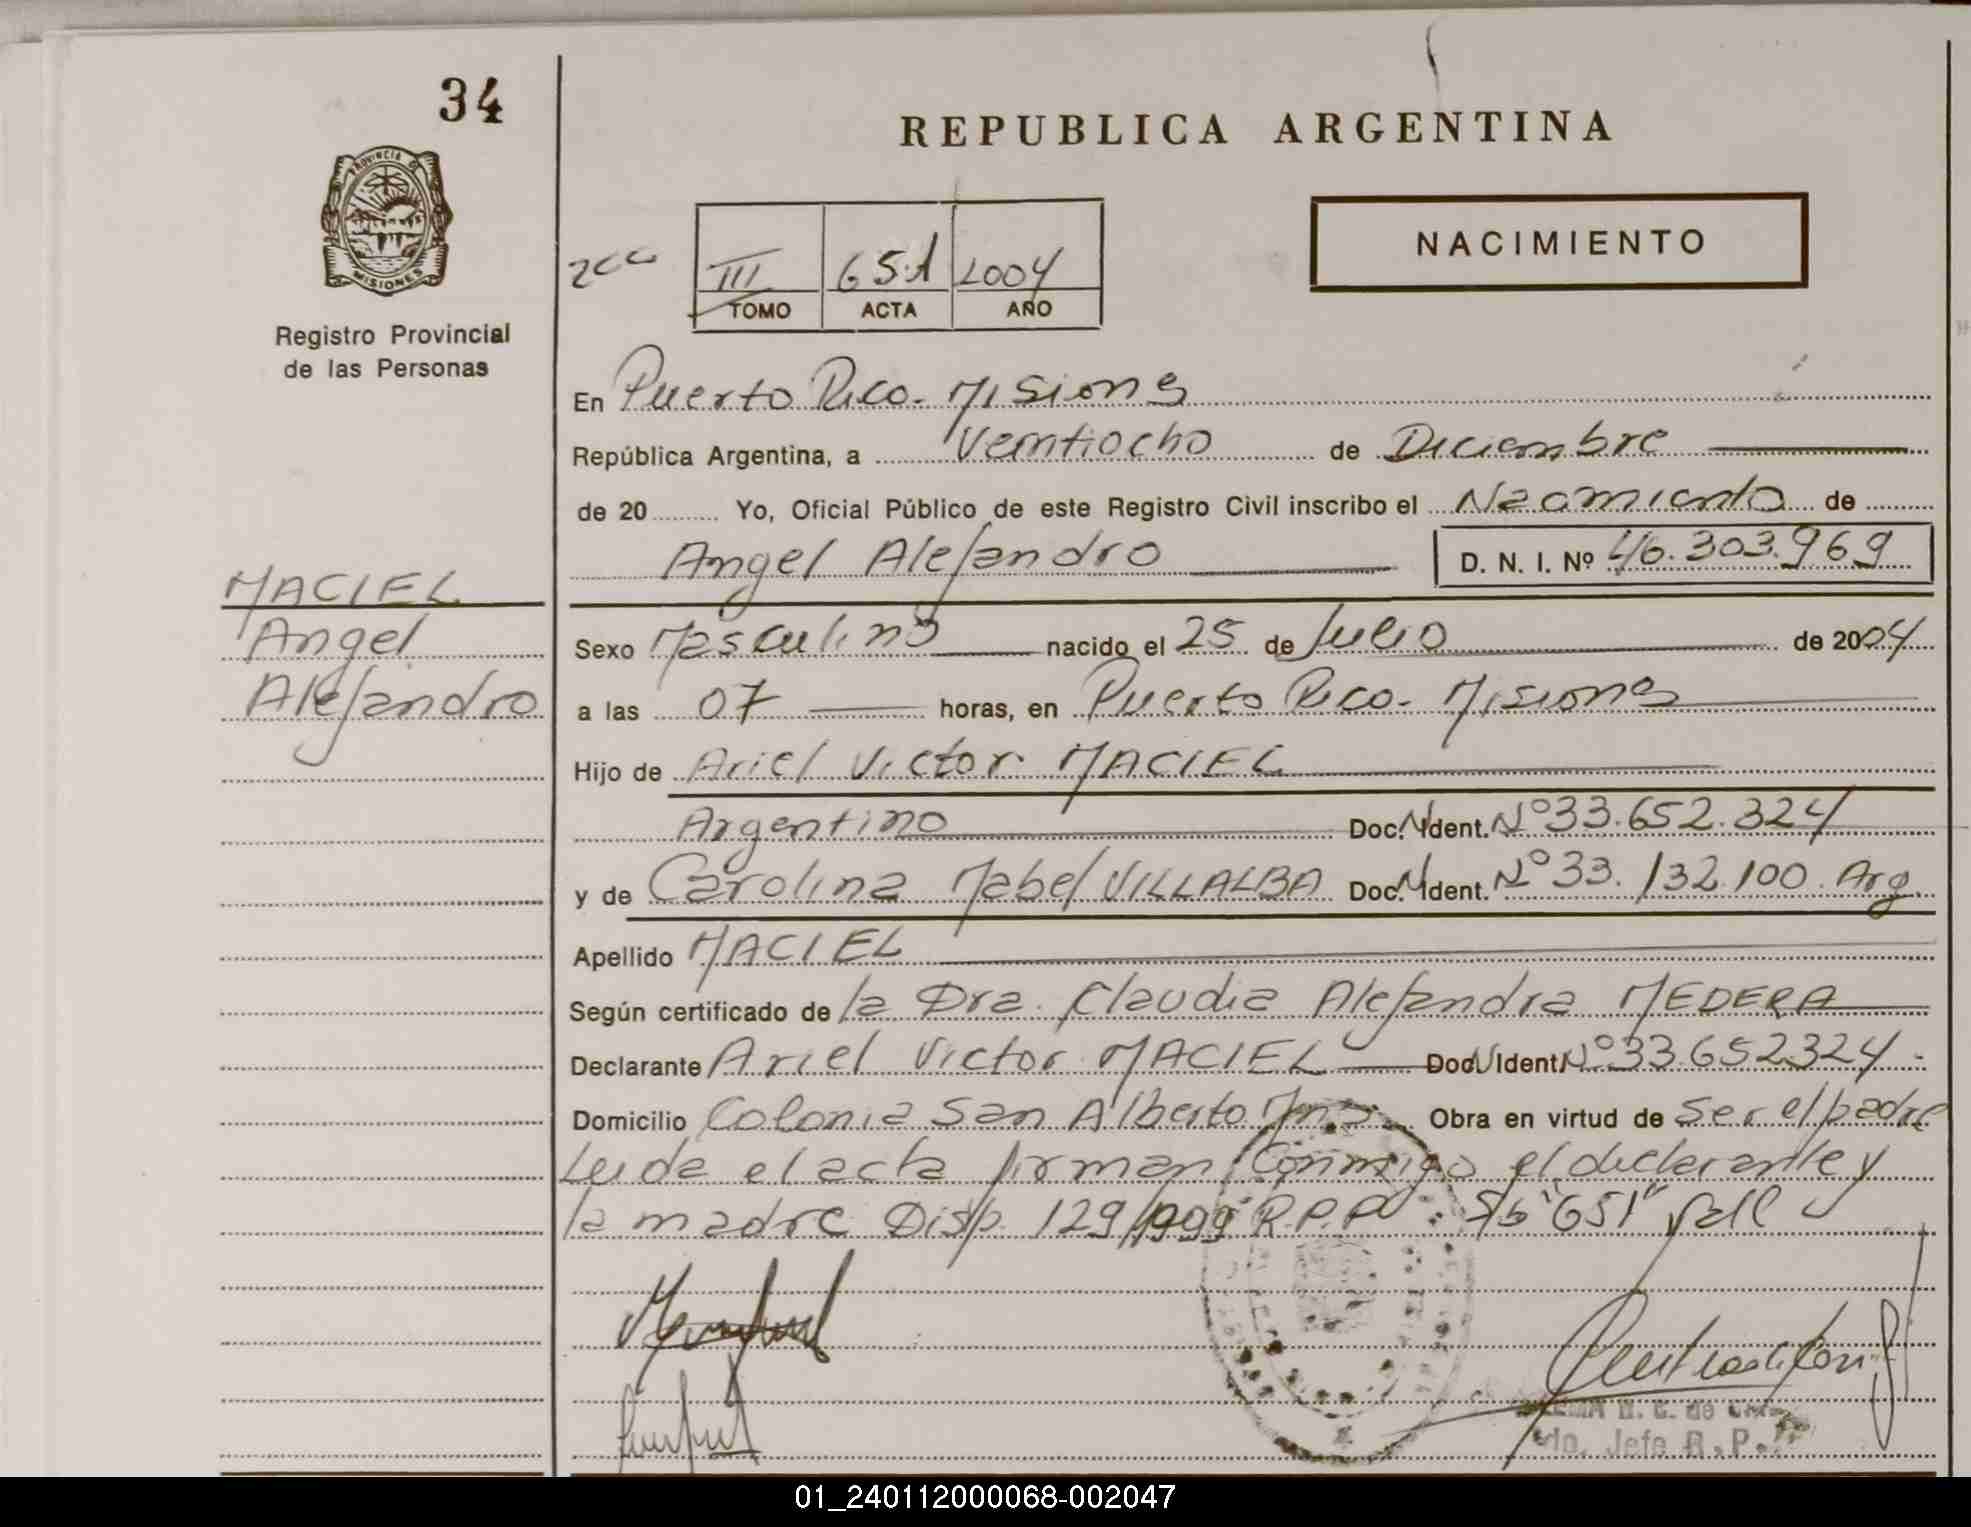 34
PROVINCIA DE
MISIONES
Registro Provincial
de las Personas
REPUBLICA ARGENTINA
NACIMIENTO
III 651 2004
TOMO ACTA AÑO
En Puerto Rico - Misiones
República Argentina, a Veintiocho de Diciembre
de 20 ......... Yo, Oficial Público de este Registro Civil inscribo el Nacimiento de
Angel Alejandro D. N. I. Nº 46.303.969
MACIEL
Angel
Alejandro
Sexo Masculino nacido el 25 de Julio de 2004
a las 07 horas, en Puerto Rico - Misiones
Hijo de Ariel Victor MACIEL
Argentino Doc. N Ident. Nº 33.652.324
y de Carolina Mabel VILLALBA Doc. N Ident. Nº 33.132.100. Arg.
Apellido MACIEL
Según certificado de la Dra. Claudia Alejandra MEDERA
Declarante Ariel Victor MACIEL Doc N Ident Nº 33652324
Domicilio Colonia San Alberto Mns. Obra en virtud de ser el padre
Leida el acta firman conmigo el declarante y
la madre Disp. 129/999 R.P.P. S/b "651" Vale
H. C. de
do. Jefe R.P.
01_240112000068-002047